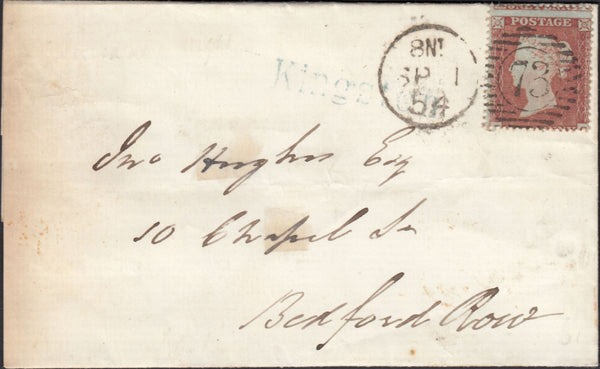 POSTAGE
8NT
SP 1
54
73
Kingston
Jno Hughes Esq
10 Chapel St
Bedford Row